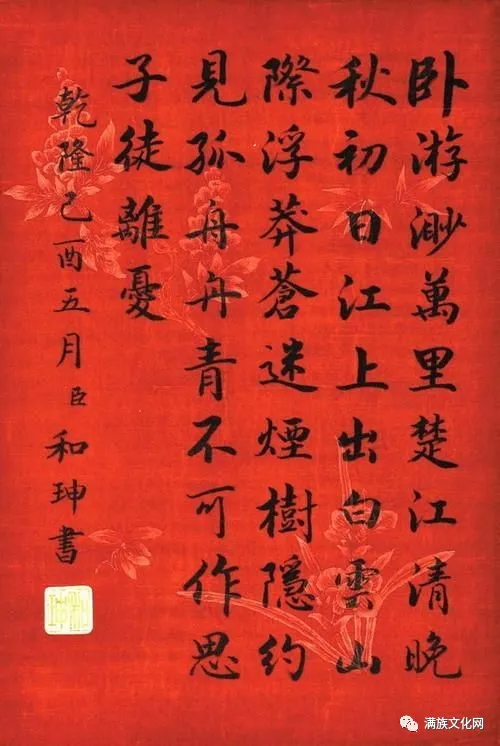 卧游渺萬里楚江清晚
秋初日江上出白雲山
際浮莽蒼迷煙樹隱約
見孤舟舟青不可作思
子徒離憂
乾隆己酉五月臣和珅書
满族文化网